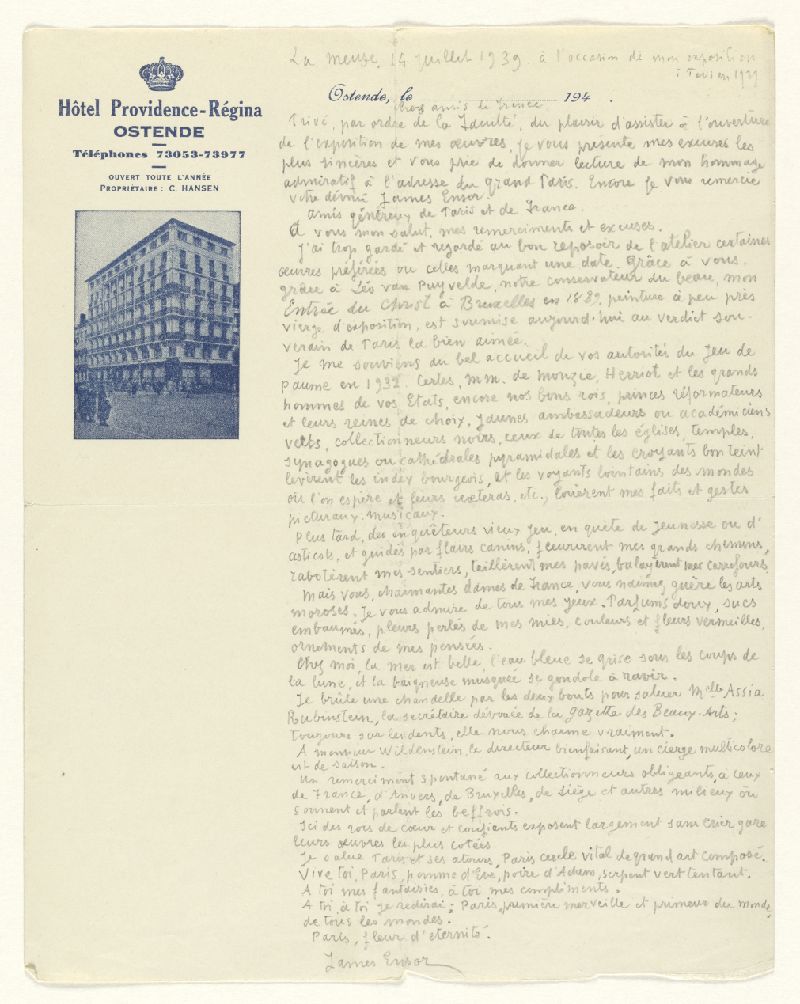 Hôtel Providence-Régina
OSTENDE
Téléphones 73053-73977
OUVERT TOUTE L'ANNÉE
PROPRIÉTAIRE : C. HANSEN
La Meuse, 14 juillet 1939. à l'occasion de mon exposition
à Paris en 1939
Ostende, le 194 .
Chers amis de France.
Privé, par ordre de la Faculté, du plaisir d'assister à l'ouverture
de l'exposition de mes œuvres, je vous présente mes excuses les
plus sincères et vous prie de donner lecture de mon hommage
admiratif à l'adresse du grand Paris. Encore je vous remercie
votre dévoué James Ensor.
Amis généreux de Paris et de France.
A vous mon salut, mes remerciments et excuses.
J'ai trop gardé et regardé au bon reposoir de l'atelier certaines
œuvres préférées ou celles marquant une date. Grâce à vous,
grâce à Léo van Puyvelde, notre conservateur du beau, mon
Entrée du Christ à Bruxelles en 1889, peinture à peu près
vierge d'exposition, est soumise aujourd'hui au verdict sou-
verain de Paris la bien aimée.
Je me souviens du bel accueil de vos autorités du Jeu de
Paume en 1932. Certes, M.M. de Monzie, Herriot et les grands
hommes de vos Etats, encore nos bons rois, princes réformateurs
et leurs reines de choix, jaunes ambassadeurs ou académiciens
verts, collectionneurs noirs, ceux de toutes les églises, temples,
synagogues ou cathédrales pyramidales et les croyants bon teint
levèrent les index bourgeois, et les voyants lointains des mondes
où l'on espère et leurs cæteras, etc., louèrent mes faits et gestes
picturaux-musicaux.
Plus tard, des enquêteurs vieux jeu, en quête de jeunesse ou d'
asticots, et guidés par flairs canins, fleurirent mes grands chemins,
rabotèrent mes sentiers, taillèrent mes pavés, balayèrent mes carrefours.
Mais vous, charmantes dames de France, vous n'aimez guère les arts
moroses. Je vous admire de tous mes yeux. Parfums doux, sucs
embaumés, pleurs perlés de mes mies, couleurs et fleurs vermeilles,
ornements de mes pensées.
Chez moi, la mer est belle, l'eau bleue se grise sous les coups de
la lune, et la baigneuse musquée se gondole à ravir.
Je brûle une chandelle par les deux bouts pour saluer Melle Assia
Rubinstein, la secrétaire dévouée de la Gazette des Beaux-Arts ;
toujours sur les dents, elle nous charme vraiment.
A monsieur Wildenstein, le directeur bienfaisant, un cierge multicolore
est de saison.
Un remerciment spontané aux collectionneurs obligeants, à ceux
de France, d'Anvers, de Bruxelles, de Liége et autres milieux où
sonnent et parlent les beffrois.
Ici des rois de cœur et confients exposent largement sans crier gare
leurs œuvres les plus cotées
Je salue Paris et ses atours, Paris cercle vital de grand art composé.
Vive toi, Paris, pomme d'Eve, poire d'Adam, serpent vert tentant.
A toi mes fantaisies, à toi mes compliments.
A toi, à toi je redirai : Paris, première merveille et primeur du monde,
de tous les mondes.
Paris, fleur d'éternité.
James Ensor